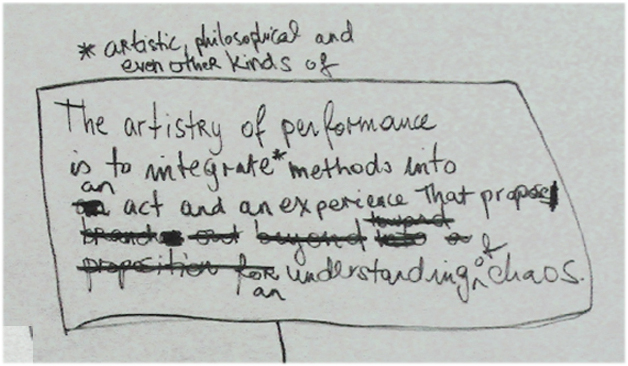 * artistic, philosophical and
even other kinds of
The artistry of performance
is to integrate* methods into
an
act and an experience that propose
toward
branch out beyond into a
of
proposition for understanding chaos.
an